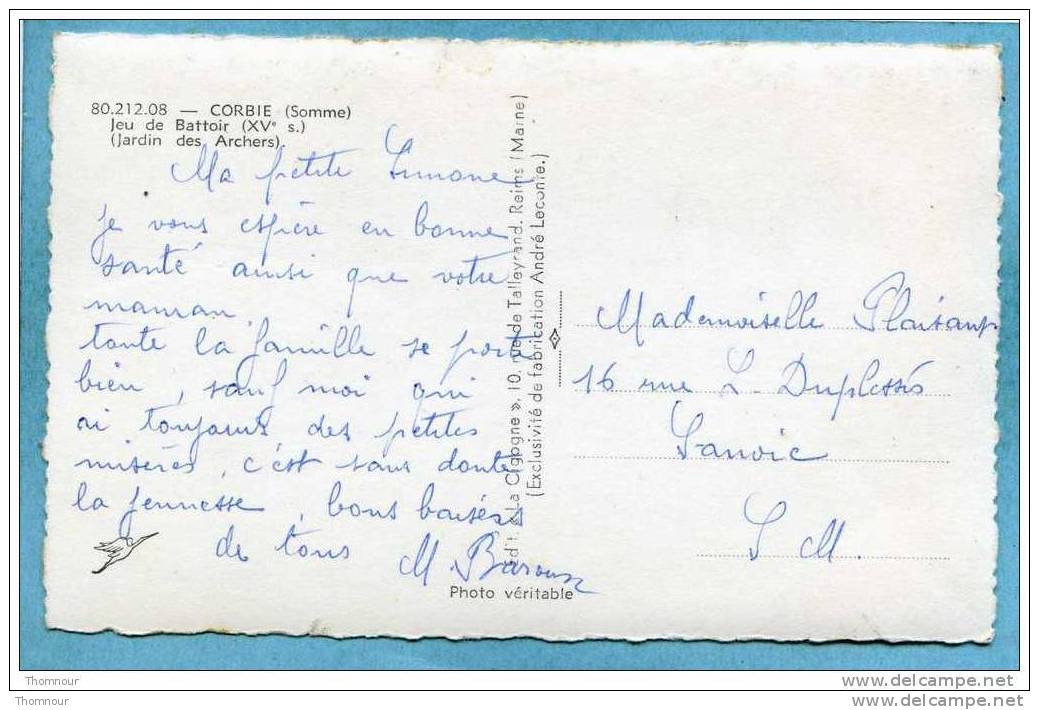 80.212.08 — CORBIE (Somme)
Jeu de Battoir (XVe s.)
(Jardin des Archers).
Ma petite Simone
je vous espère en bonne
santé ainsi que votre
maman.
toute la famille se porte
bien, sauf moi qui
ai toujours des petites
misères, c'est sans doute
la jeunesse, bons baisers
de tous
M
Photo véritable
Edit. « La Cigogne », 10, rue de Talleyrand. Reims (Marne)
(Exclusivité de fabrication André Leconte.)
Mademoiselle
16 rue L. Duplessis
Sanvic
S M.
Thomnour
www.delcampe.net
Thomnour
www.delcampe.net